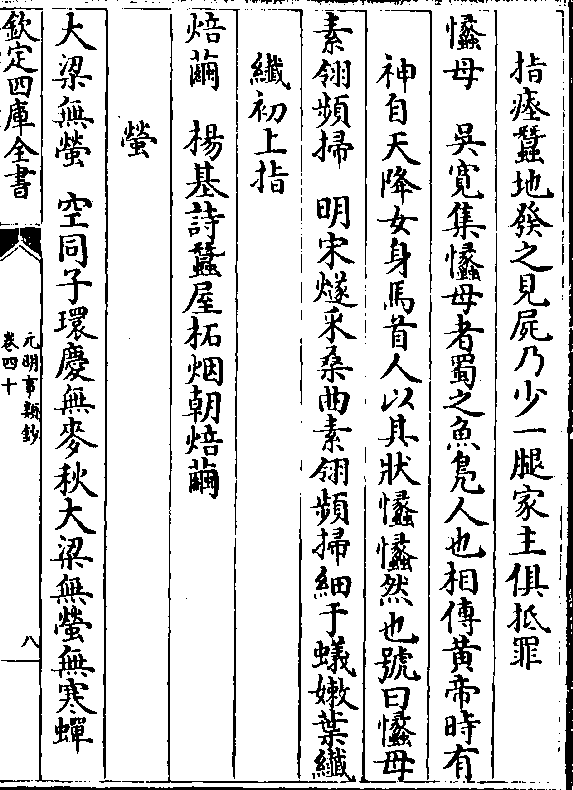 指瘞蠶地發之見屍乃少一腿家主俱抵罪
㦬母　吳寛集㦬母者蜀之魚鳬人也相傳黄帝時有
神自天降女身馬首人以其狀㦬㦬然也號曰㦬母
素翎頻掃　明宋燧采桑曲素翎頻掃細于蟻嫩葉纖
纖初上指
焙繭　楊基詩蠶屋柘烟朝焙繭
螢
大梁無螢　空同子環慶無麥秋大梁無螢無寒蟬
欽定四庫全書
元明事類鈔
卷四十
八